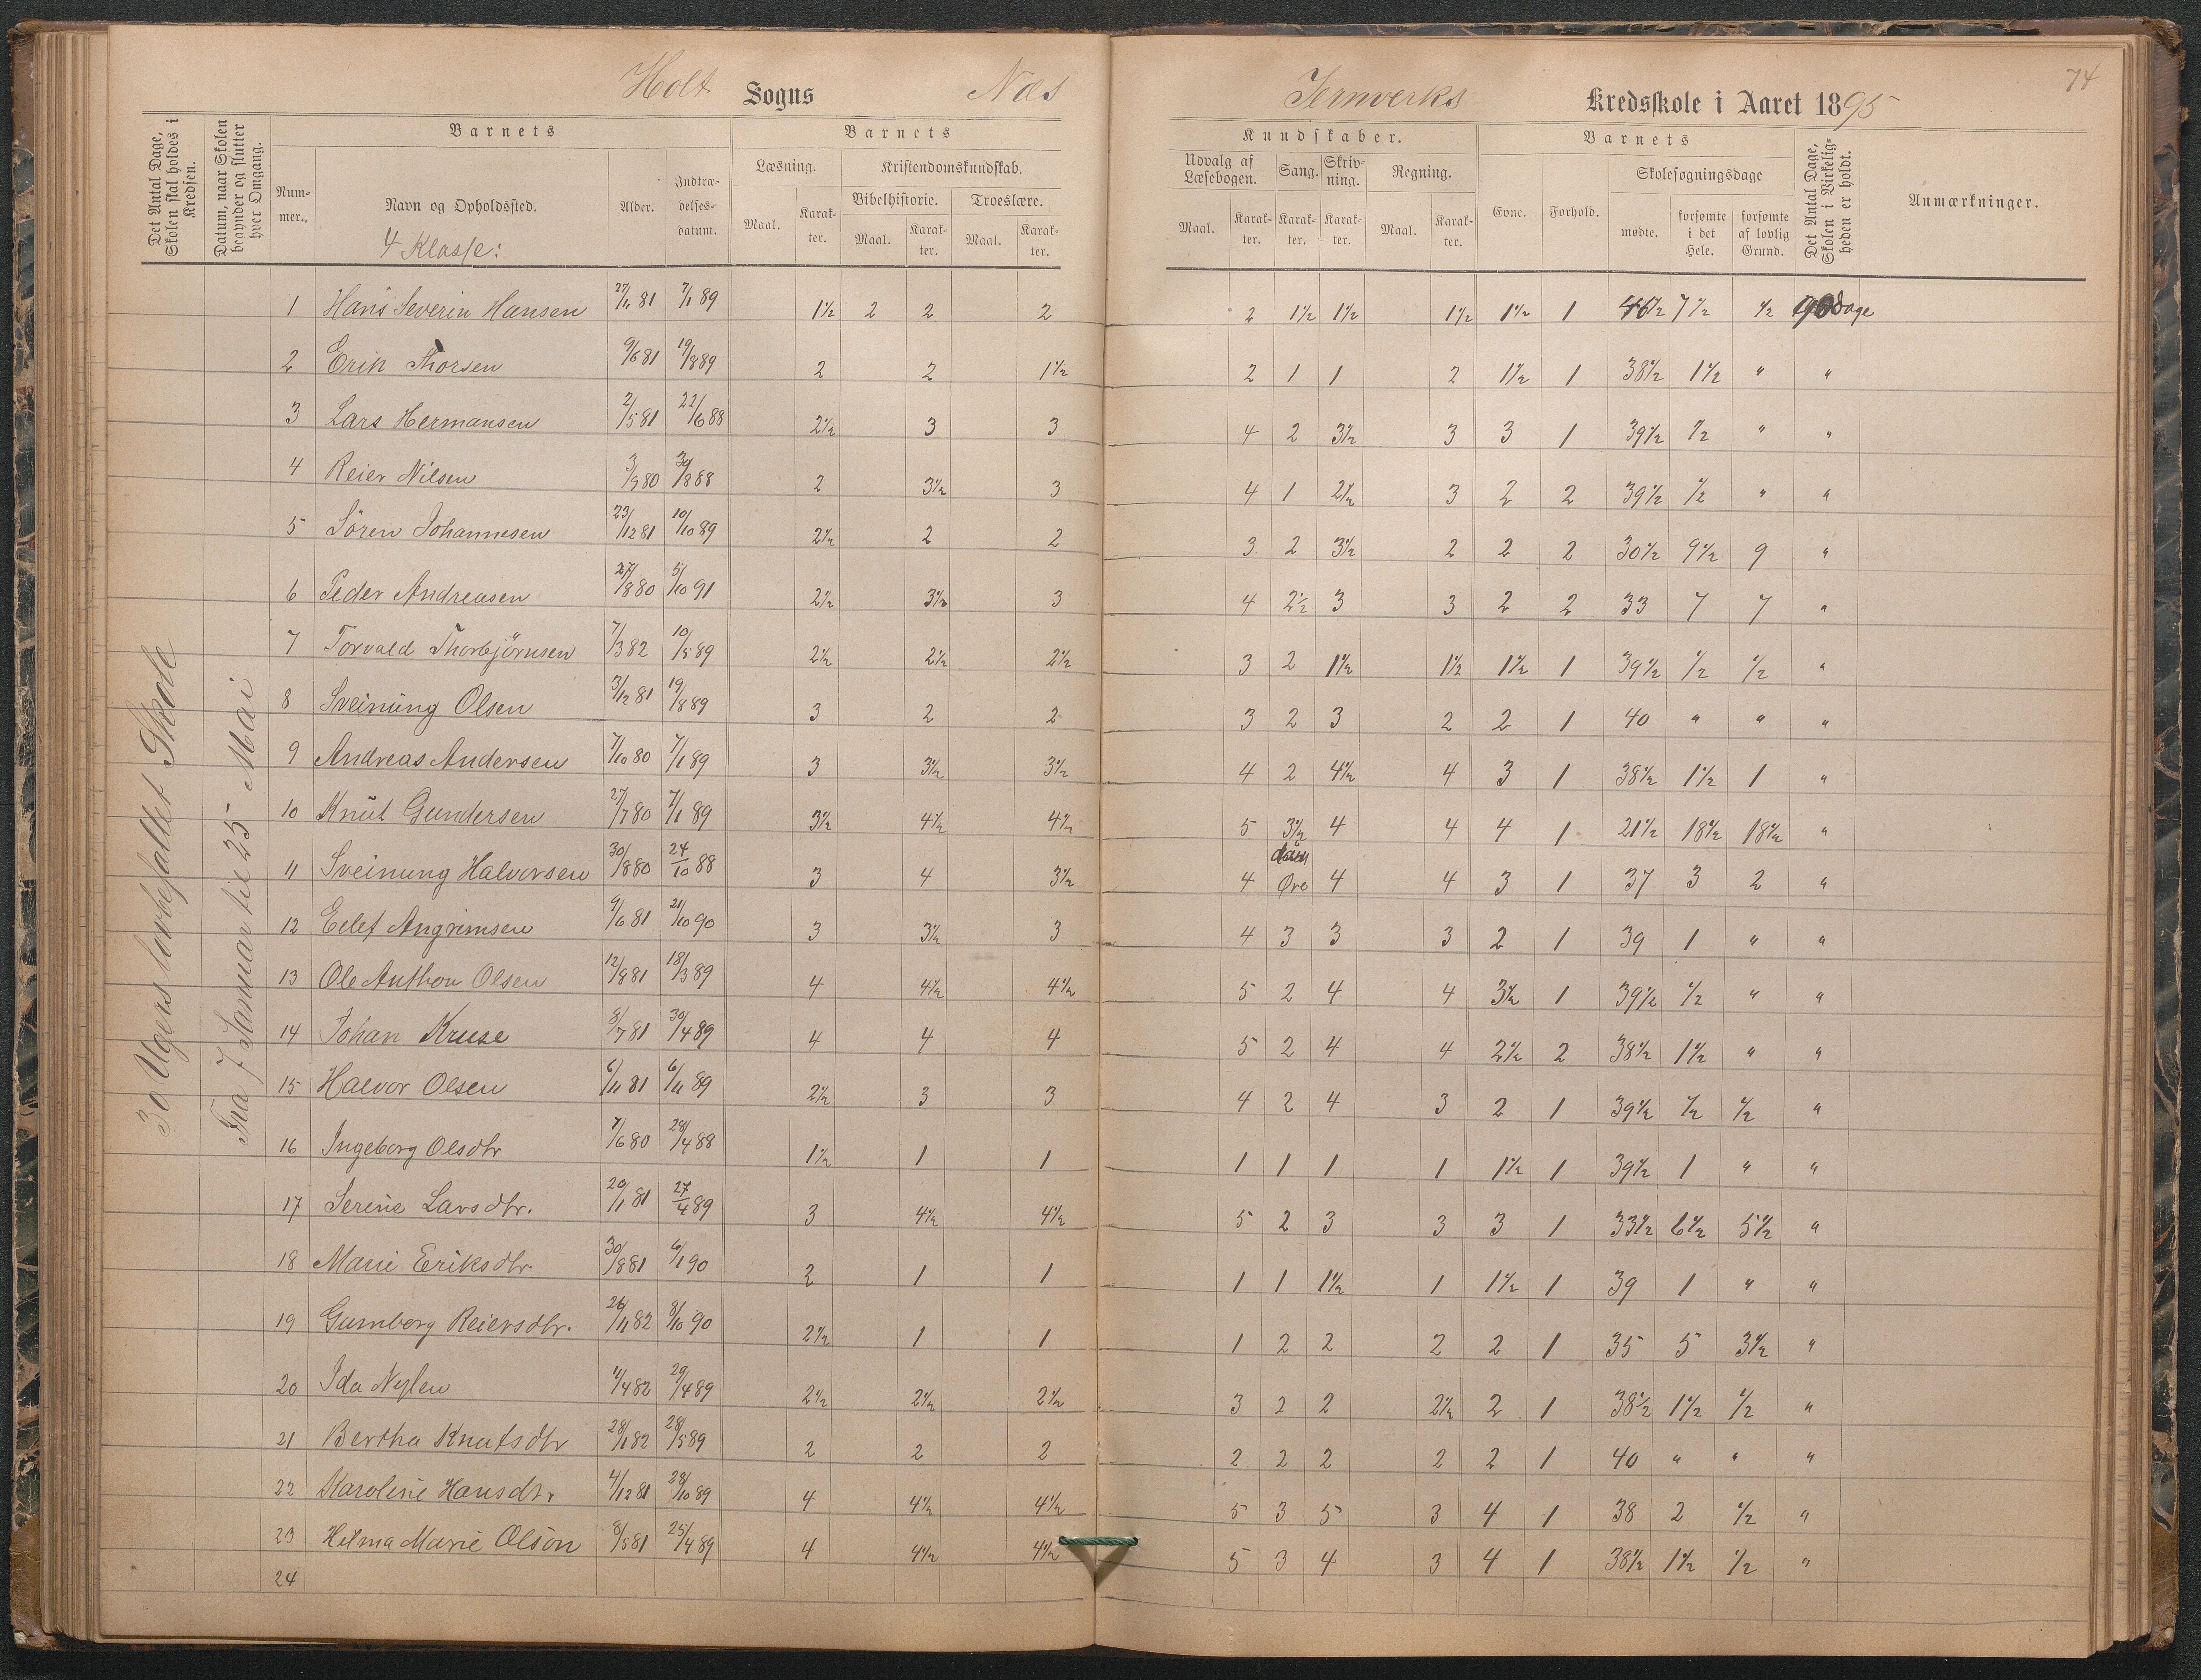 74
Holt Sogns Næs Jernverks Kredsskole i Aaret 1895
Det Antal Dage, Skolen skal holdes i Kredsen.
Datum, naar Skolen begynder og slutter hver Omgang.
Barnets
Barnets
Kundskaber.
Barnets
Det Antal Dage, Skolen i Virkeligheden er holdt.
Anmærkninger.
Nummer. Navn og Opholdssted. Alder. Indtrædelsesdatum.
Læsning. Kristendomskundskab. Udvalg af Læsebogen. Sang. Skrivning. Regning. Evne. Forhold. Skolesøgningsdage
Bibelhistorie. Troeslære.
Maal. Karakter. Maal. Karakter. Maal. Karakter. Maal. Karakter. Karakter. Karakter. Maal. Karakter. mødte. forsømte i det Hele. forsømte af lovlig Grund.
4 Klasse:
30 Ugers lovbefallet Skole
Fra 7 Januar til 25 Mai
1 Hans Severin Hansen 27/11 81 7/1 89 1½ 2 2 2 2 1½ 1½ 1½ 1½ 1 7½ ½ Dage
2 Erik Thorsen 9/6 81 19/8 89 2 2 1½ 2 1 1 2 1½ 1 38½ 1½ " "
3 Lars Hermansen 2/5 81 22/6 88 2½ 3 3 4 2 3½ 3 3 1 39½ ½ " "
4 Reier Nilsen 3/9 80 30/8 88 2 3½ 3 4 1 2½ 3 2 2 39½ ½ " "
5 Søren Johannesen 23/12 81 10/10 89 2½ 2 2 3 2 3½ 2 2 2 30½ 9½ 9 "
6 Peder Andreasen 27/8 80 5/10 91 2½ 3½ 3 4 2½ 3 3 2 2 33 7 7 "
7 Torvald Thorbjørnsen 7/3 82 10/5 89 2½ 2½ 2½ 3 2 1½ 1½ 1½ 1 39½ ½ ½ "
8 Sveinung Olsen 3/12 81 19/8 89 3 2 2 3 2 3 2 2 1 40 " " "
9 Andreas Andersen 7/10 80 7/1 89 3 3½ 3½ 4 2 4½ 4 3 1 38½ 1½ 1 "
10 Knut Gundersen 27/7 80 7/1 89 3½ 4½ 4½ 5 3½ 4 4 4 1 21½ 18½ 18½ "
11 Sveinung Halvorsen 30/8 80 24/10 88 3 4 3½ 4 Øre 4 4 3 1 37 3 2 "
12 Eelef Angrimsen 9/6 81 21/10 90 3 3½ 3 4 3 3 3 2 1 39 1 " "
13 Ole Anthon Olsen 12/8 81 18/3 89 4 4½ 4½ 5 2 4 4 3½ 1 39½ ½ " "
14 Johan Kruse 8/7 81 30/4 89 4 4 4 5 2 4 4 2½ 2 38½ 1½ " "
15 Halvor Olsen 6/11 81 6/11 89 2½ 3 3 4 2 4 3 2 1 39½ ½ ½ "
16 Ingeborg Olsdtr 7/6 80 28/4 88 1½ 1 1 1 1 1 1 1½ 1 39½ 1 " "
17 Serine Larsdtr. 20/1 81 27/4 89 3 4½ 4½ 5 2 3 3 3 1 33½ 6½ 5½ "
18 Marie Eriksdtr. 30/8 81 6/1 90 2 1 1 1 1 1½ 1 1½ 1 39 1 " "
19 Gumborg Reiersdtr. 26/11 82 8/10 90 2½ 1 1 1 2 2 2 2 1 35 5 3½ "
20 Ida Nylen 11/4 82 29/4 89 2½ 2½ 2½ 3 2 2 2½ 2 1 38½ 1½ ½ "
21 Bertha Knutsdtr 28/1 82 28/5 89 2 2 2 2 2 2 2 2 1 40 " " "
22 Karoline Hansdtr 4/12 81 28/10 89 4 4½ 4½ 5 3 5 3 4 1 38 2 ½ "
23 Hilma Marie Olson 8/5 81 25/4 89 4 4½ 4½ 5 3 4 3 4 1 38½ 1½ ½ "
24